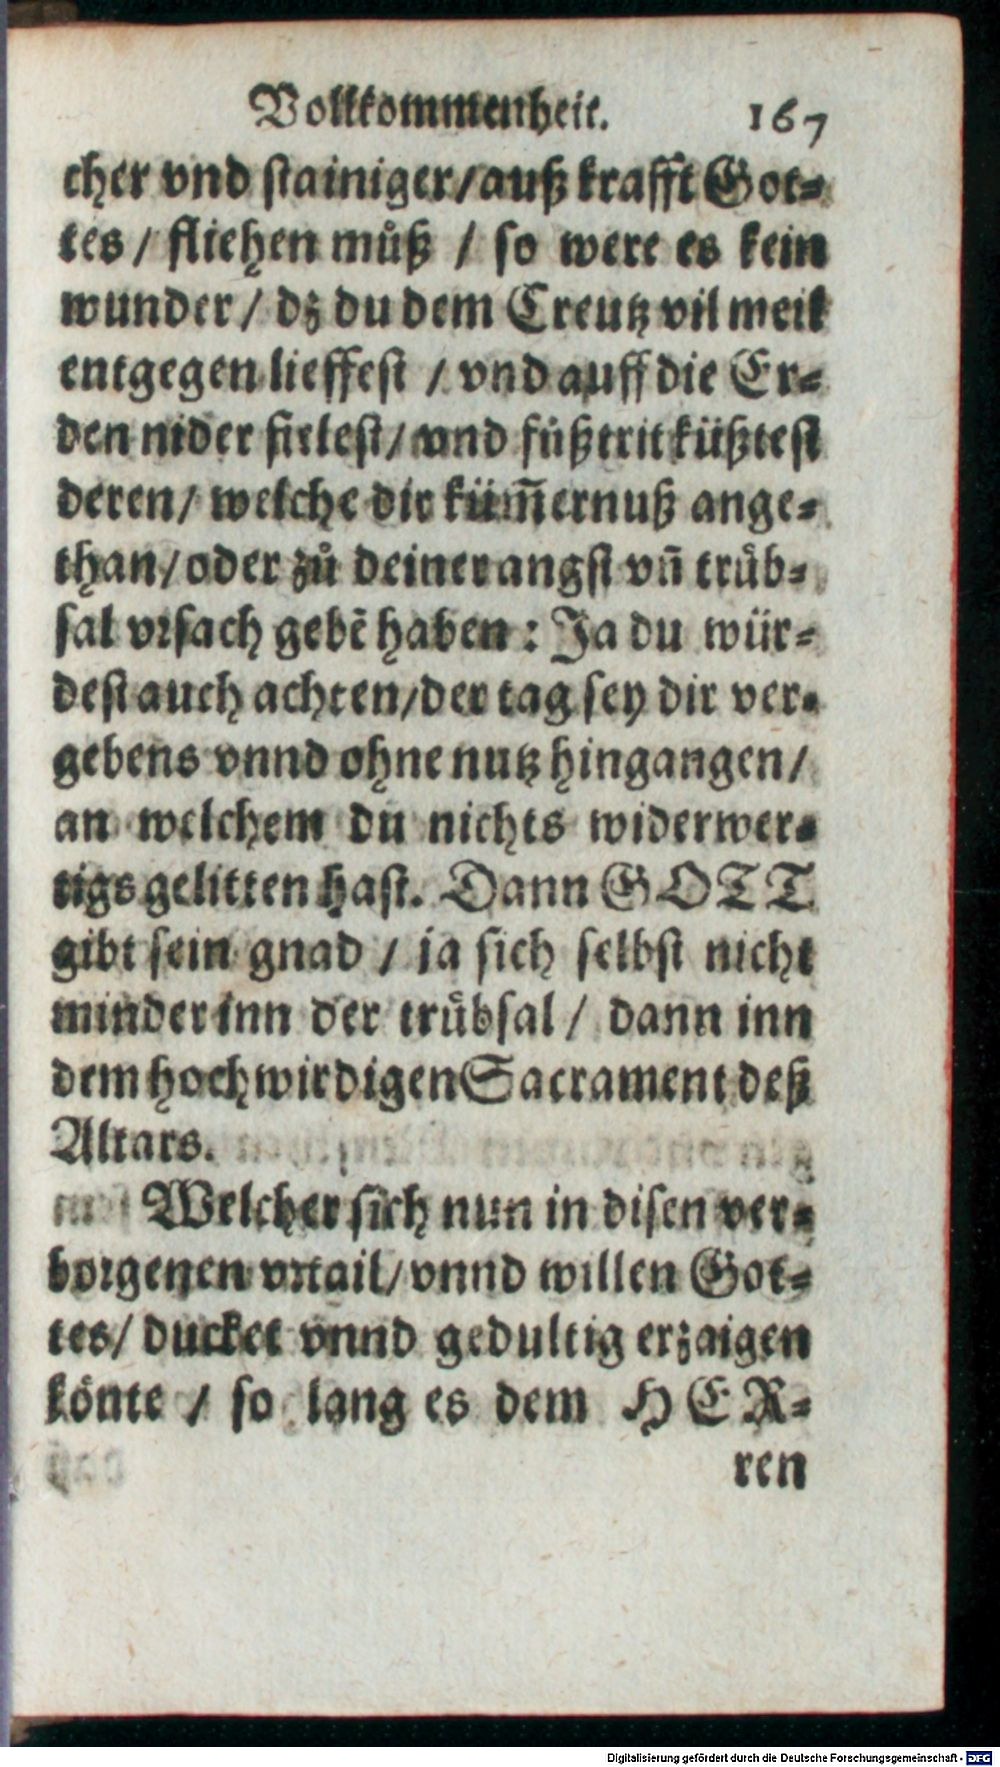 Vollkommenheit. 167
cher vnd stainiger/auß krafft Got-
tes/ fliehen můß / so were es kein
wunder/ dz du dem Creutz vil meil
entgegen lieffest / vnd auff die Er-
den nider fielest/ vnd fůßtrit küßtest
deren/ welche dir küm̃ernuß ange-
than/oder zů deiner angst vñ trůb-
sal vrsach gebẽ haben : Ja du wür-
dest auch achten/der tag sey dir ver-
gebens vnnd ohne nutz hingangen/
an welchem du nichts widerwer-
tigs gelitten hast. Dann GOTT
gibt sein gnad / ja sich selbst nicht
minder inn der trůbsal/ dann inn
dem hochwirdigen Sacrament deß
Altars.
Welcher sich nun in disen ver-
borgenen vrtail/vnnd willen Got-
tes/ ducket vnnd gedultig erzaigen
könte / so lang es dem HER-
ren
Digitalisierung gefördert durch die Deutsche Forschungsgemeinschaft - DFG